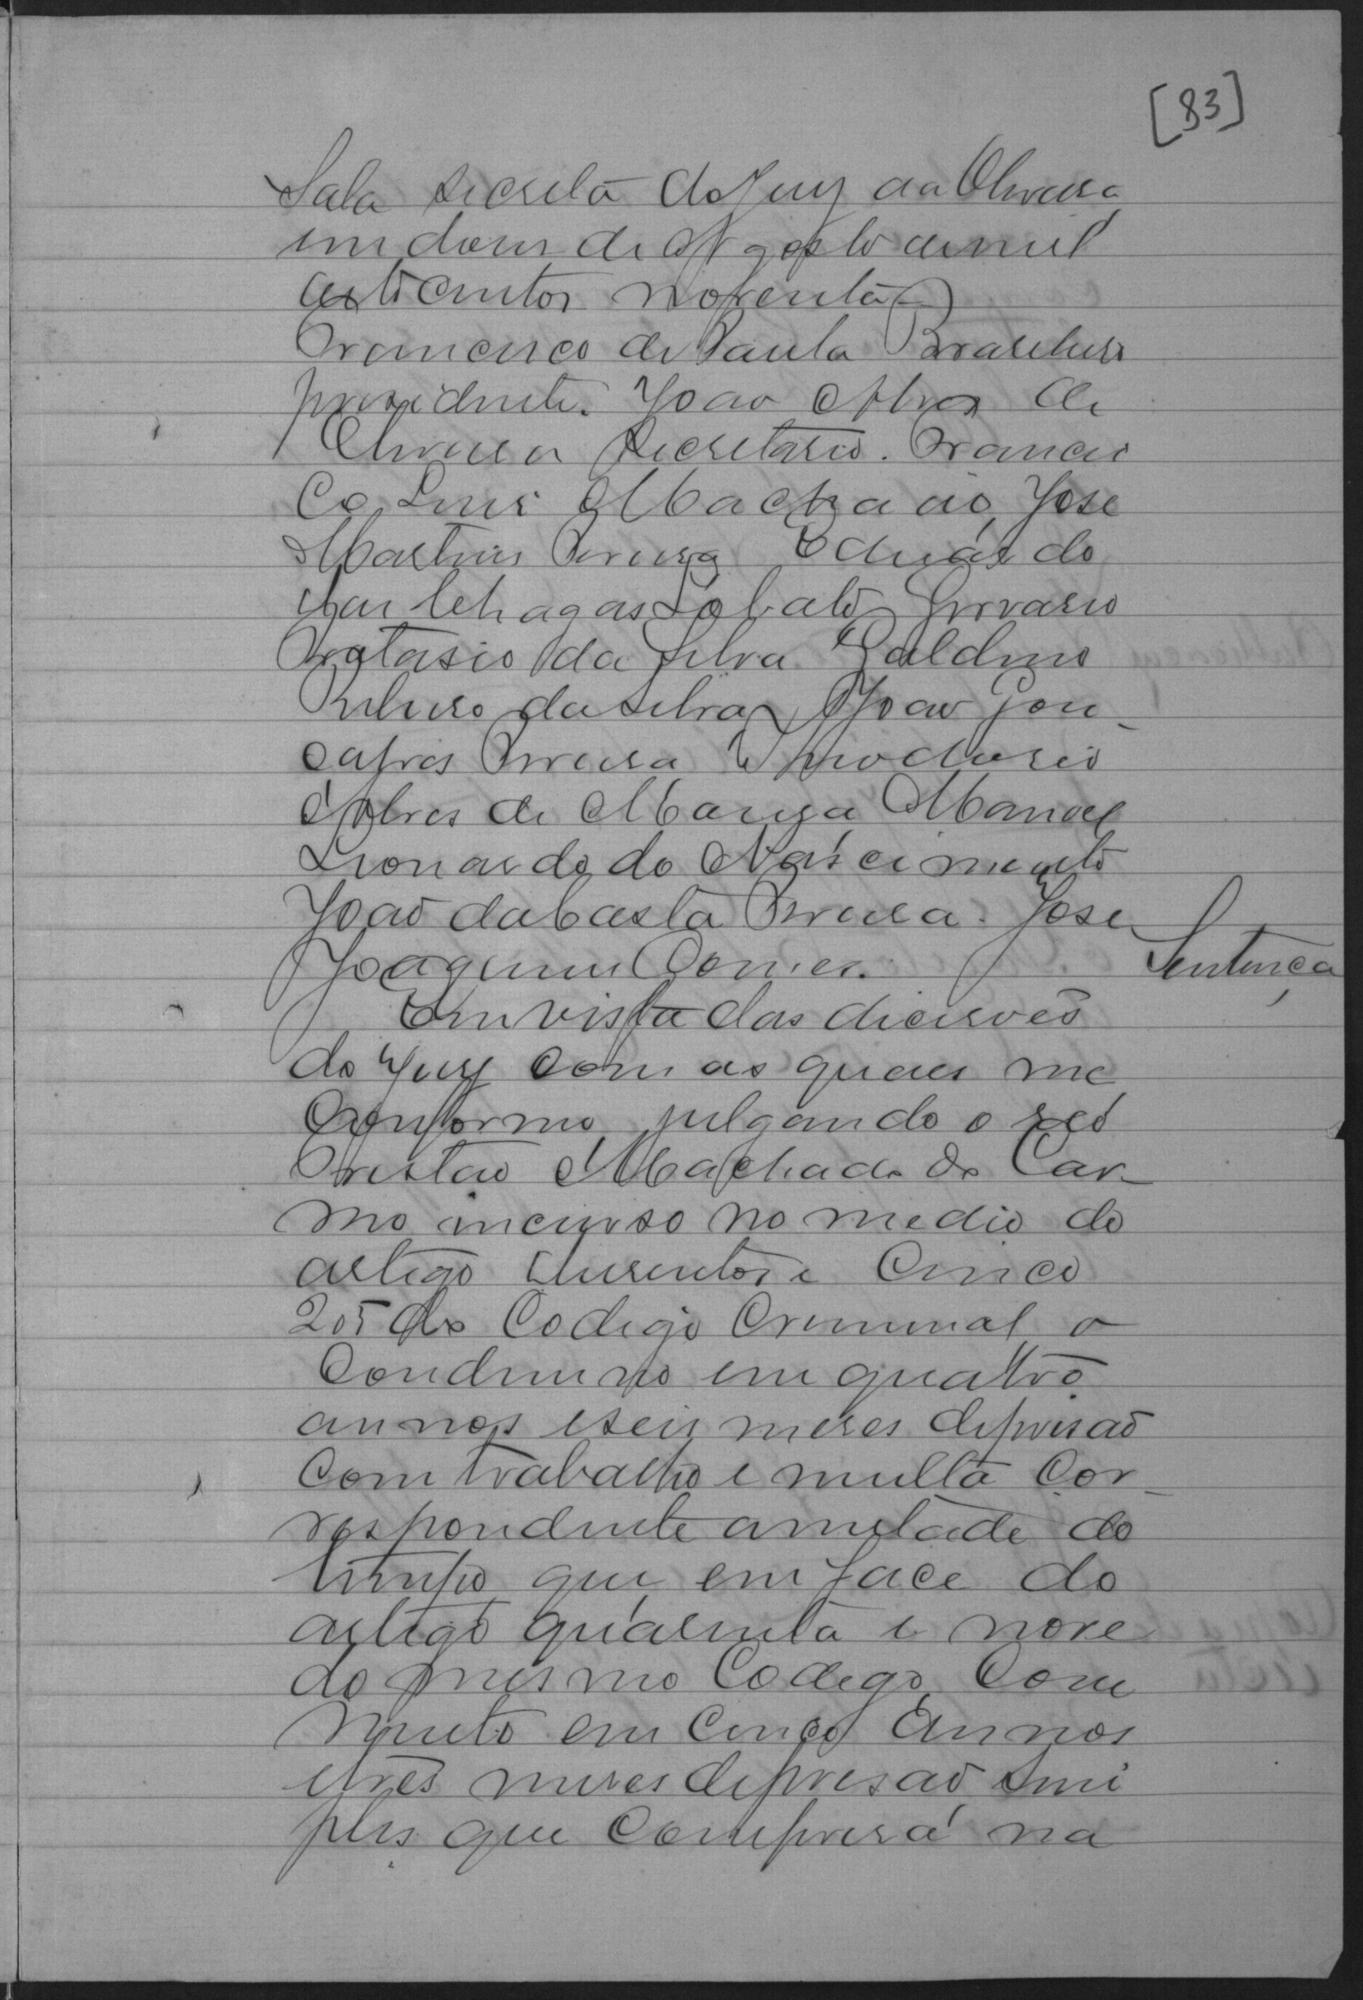 [83]
Sala secreta do Jury da Oliveira
em doeis de Agosto de mil
oitocentos noventa
Francisco de Paula Brasileiro
presidente. Joao Alves de
Oliveira Secretario. Francis
co Luis Machado, Jose
Martins Pereira Eduardo
das Chagas Lobato, Gervasio
Protasio da Silva Galdino
Ribeiro da Silva, Joao Gon-
salves Pereira Theodorio
Alves de Maria Manoel
Leonardo do Nascimento
Joao da Costa Pereira. Jose
Joaquim Gomes.
Sentença
Em vista das dicisoẽs
do Jury com as quaes me
conformo, julgando o reó
Tristão Machado do Car-
mo incurso no medio do
artigo dusentos e Cinco
205 do Codigo Criminal o
Condemno em quatro
annos e seis meses de prisaõ
com trabalho e multa Cor-
respondente a metade do
tempo que em face do
artigo quarenta e nove
do mesmo Codigo, Com
muto em cinco annos
e tres meses de prisaõ Sim
ples que comprirá na